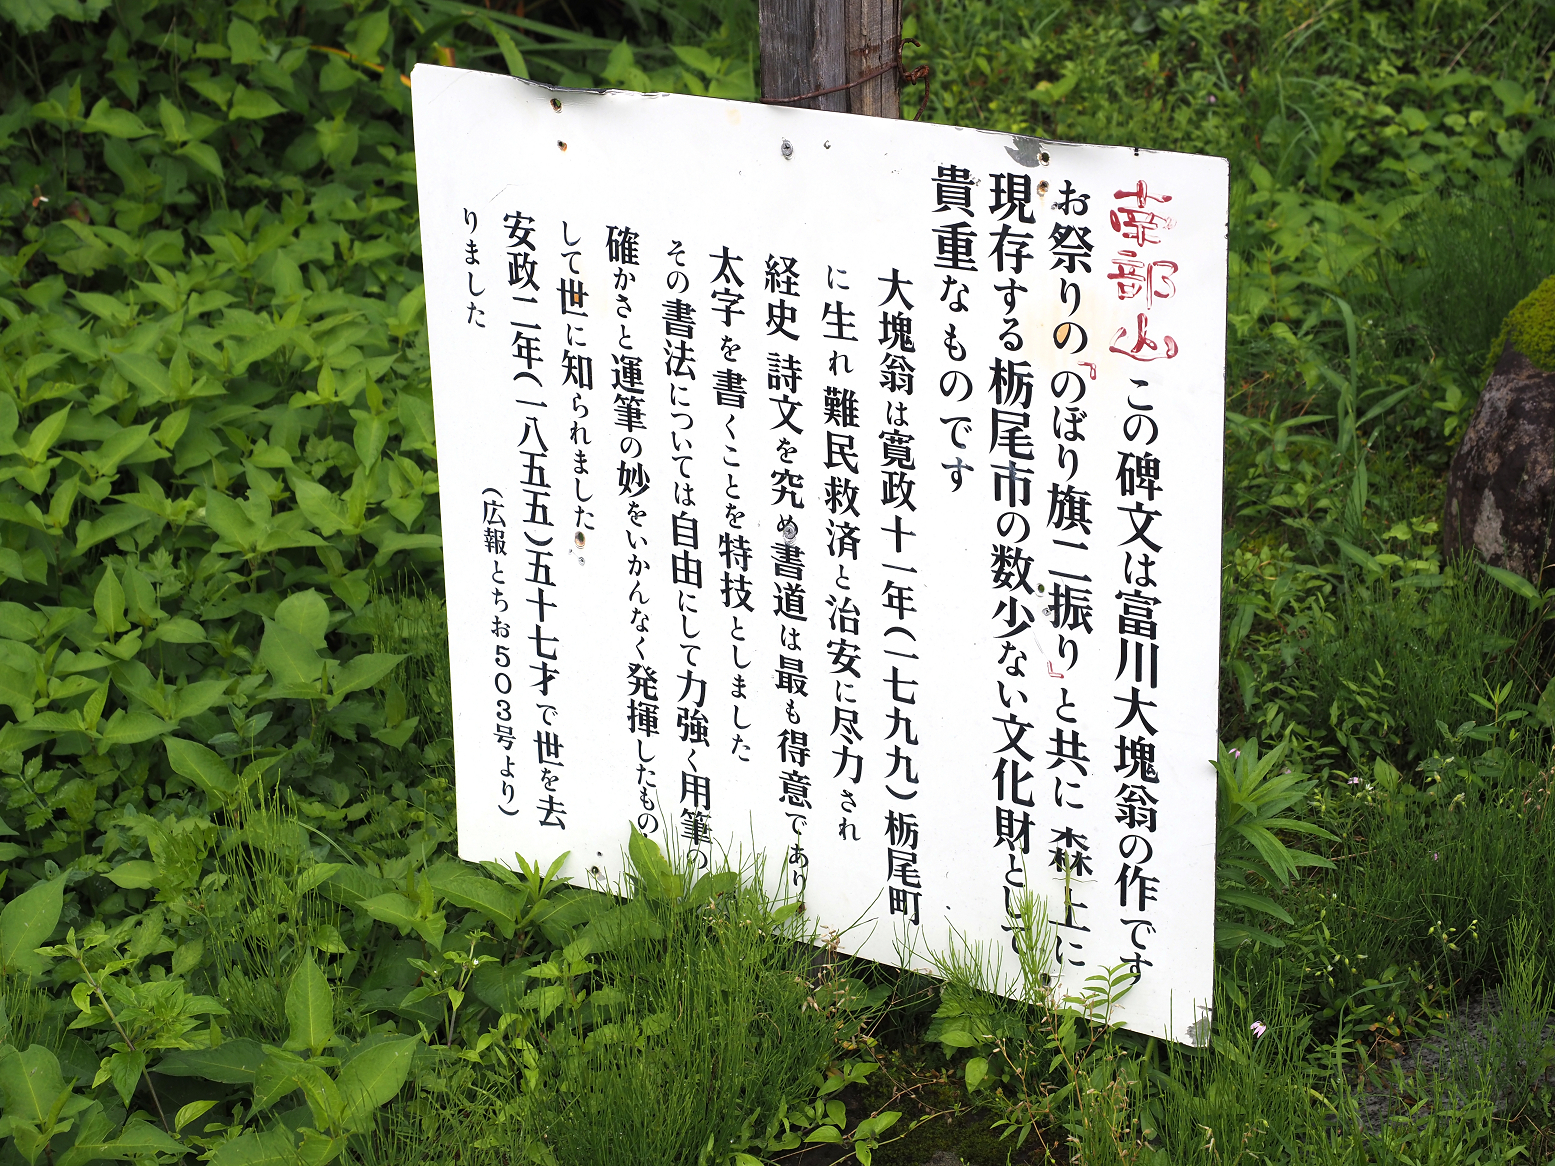 南部山 この碑文は富川大塊翁の作です
お祭りの『のぼり旗二振り』と共に 森上に
現存する栃尾市の数少ない文化財として
貴重なものです
大塊翁は寛政十一年(一七九九)栃尾町
に生れ難民救済と治安に尽力され
経史 詩文を究め書道は最も得意であり
太字を書くことを特技としました
その書法については自由にして力強く用筆の
確かさと運筆の妙をいかんなく発揮したもの
して世に知られました
安政二年(一八五五)五十七才で世を去
りました
(広報とちお503号より)